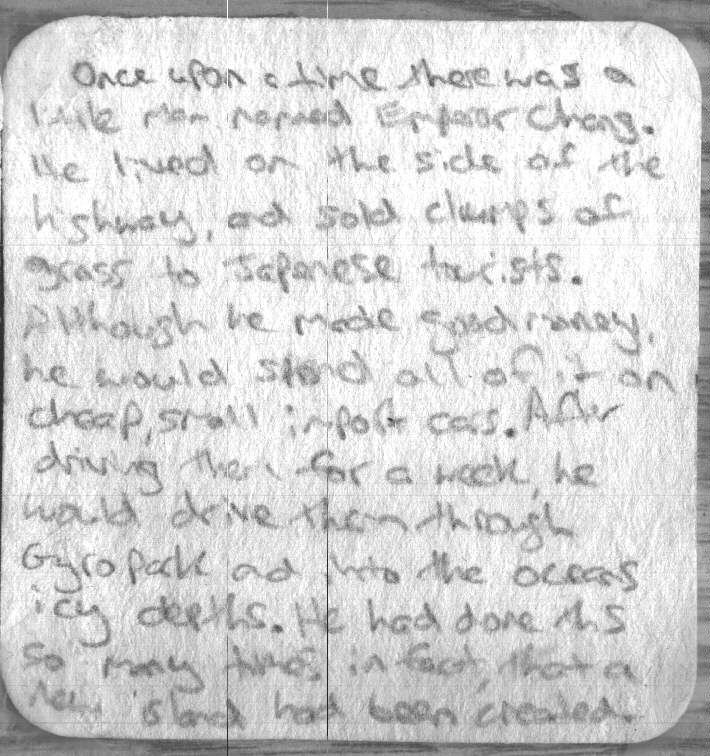 Once upon a time there was a
little man named Emperor Chang.
He lived on the side of the
highway, and sold clumps of
grass to Japanese tourists.
Although he made good money,
he would spend all of it on
cheap, small import cars. After
driving them for a week, he
would drive them through
Gyro Park and into the oceans
icy depths. He had done this
so many times, in fact, that a
new island had been created.